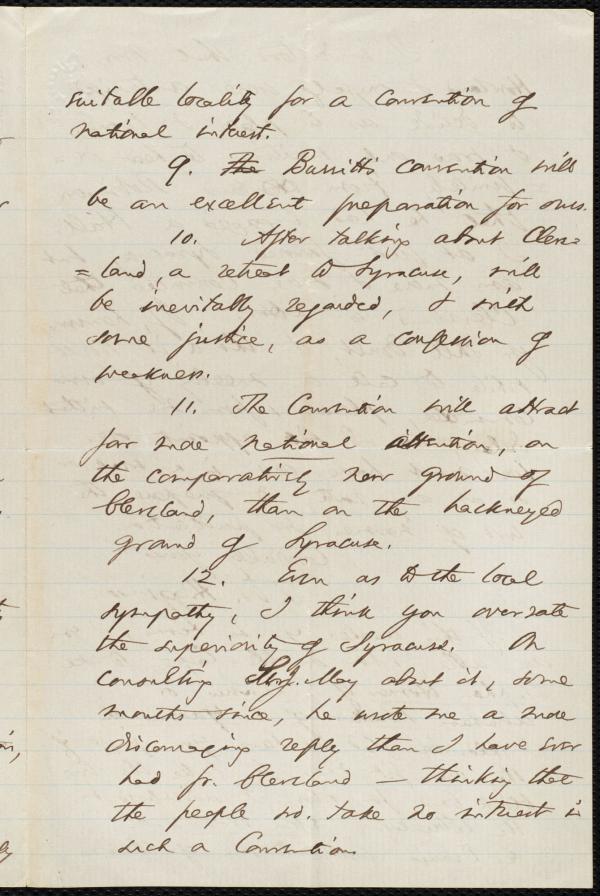 suitable locality for a Convention of
national interest.
9. The Burritt's convention will
be an excellent preparation for ours.
10. After talking about Cleve=
=land, a retreat to Syracuse, will
be inevitably regarded, & with
some justice, as a confession of
weakness.
11. The Convention will attract
far more national attention, on
the comparatively new ground of
Cleveland, than on the hackneyed
ground of Syracuse.
12. Even as to the local
sympathy, I think you overrate
the superiority of Syracuse. On
consulting May about it, some
months since, he wrote me a more
discouraging reply than I have ever
had fr. Cleveland — thinking that
the people wd. take no interest in
such a Convention